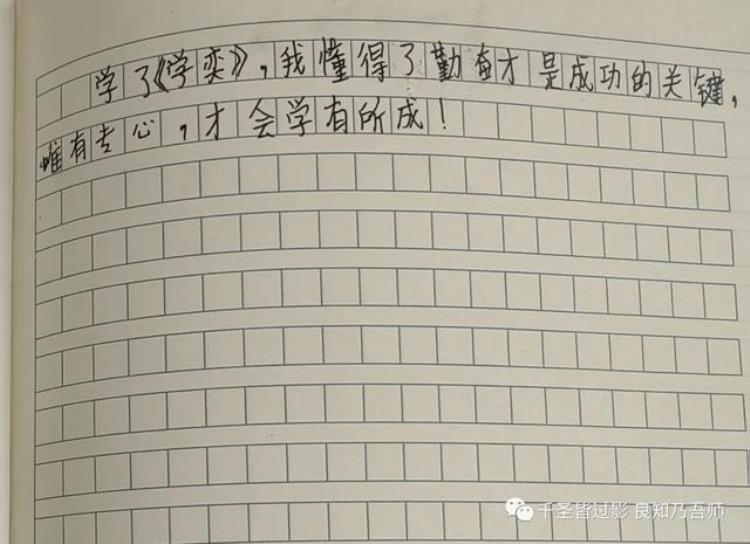 学了《学奕》，我懂得了勤奋才是成功的关键，
唯有专心，才会学有所成！
千圣皆过影 良知乃吾师